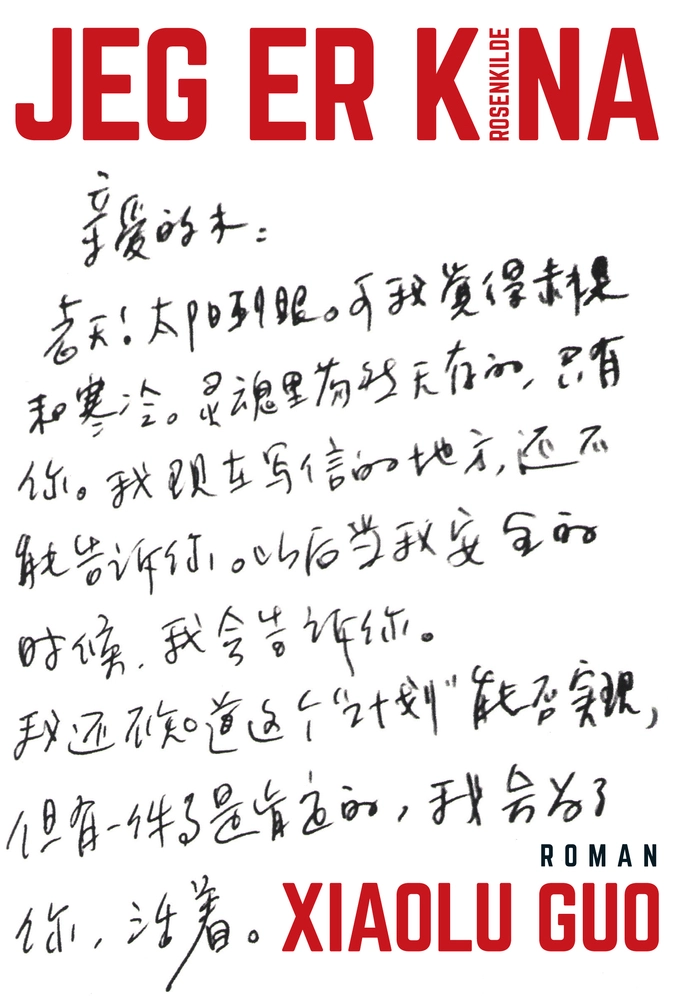 JEG ER KINA
ROSENKILDE
亲爱的木:
春天!太阳刺眼。可我觉得
和寒冷。灵魂里的无存的,只有
你。我现在写信的地方,还不
能告诉你。以后当我安全的
时候,我会告诉你。
我还不知道这个“计划”能否实现,
但有一件事是肯定的,我会为了
你,活着。
ROMAN
XIAOLU GUO